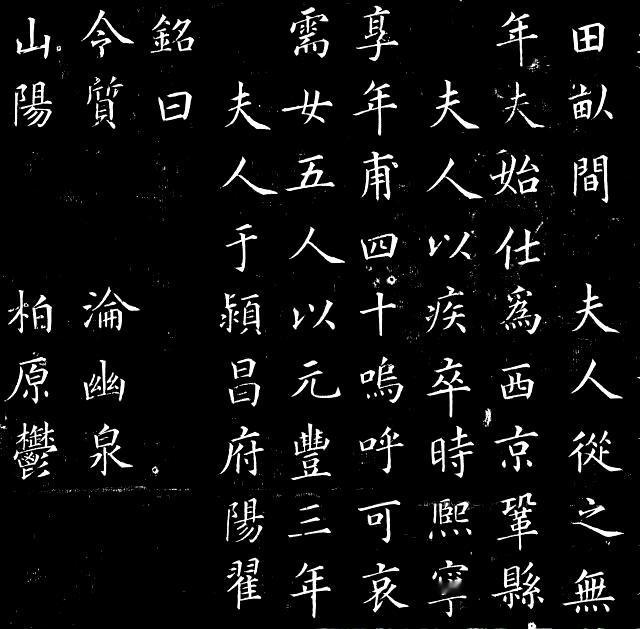 田畝間 夫人從之無
年夫始仕為西京鞏縣
夫人以疾卒時熙寧
享年甫四十嗚呼可哀
需女五人以元豐三年
夫人于潁昌府陽翟
銘曰
令質 淪幽泉
山陽 柏原鬱